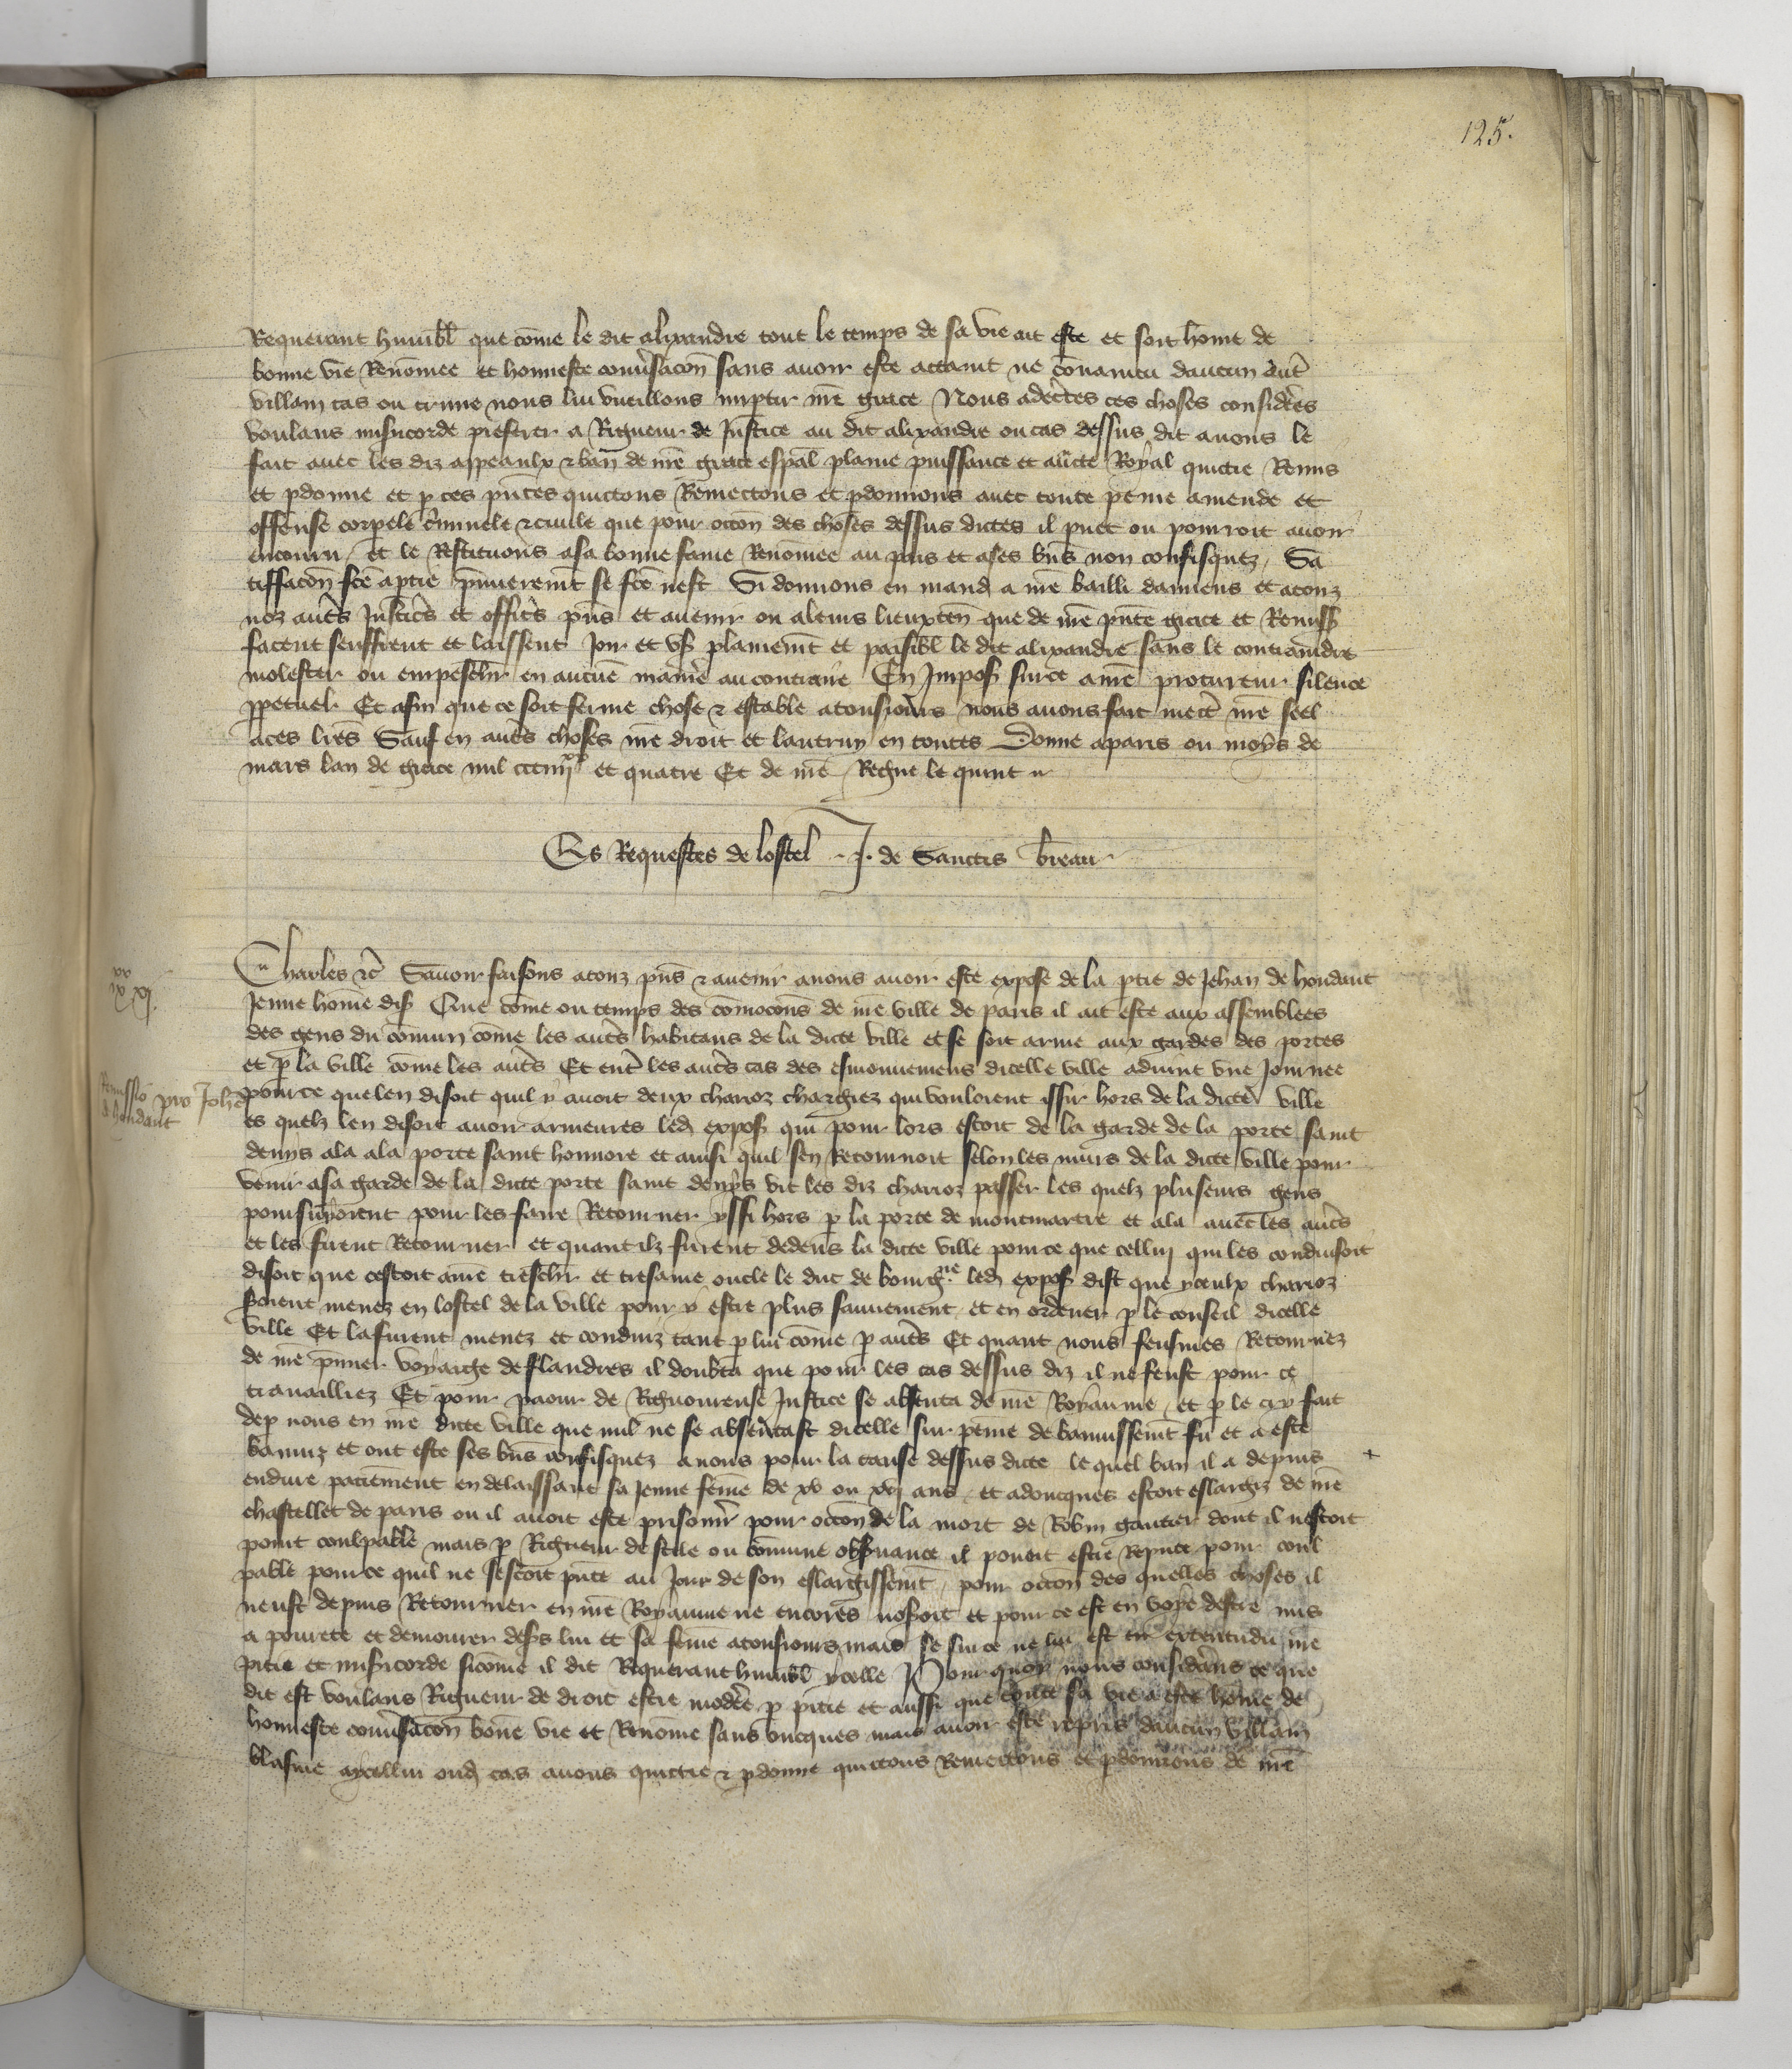 125.
Requerant humbl̄ que cōme le dit alixandre tout le temps de sa vie ait este et soit hōme de
bonne vie Renōmee et honneste conuˀsacōn sans auoir este attaint ne cōuaincu daucun autˀ
villain cas ou crime nous lui vueillons impartir nr̄e grace Nous adecˀtes ces choses considˀes
voulans misericorde preferer a Rigueur de Justice au dit alixandre ou cas dessus dit auons le
fait auec les diz appeaulx ⁊ ban de nr̄e grace esp̄al plaine puissance et auc̄te Royal quictie Remis
et ꝑdonne et ꝑ ces pn̄tes quictons Remectons et ꝑdonnons auec toute peine amende et
offense corpele cˀiminele ⁊ ciuile que pour occōn des choses dessus dictes il puet ou pourroit auoir
encouru et le Restituons a sa bonne fame Renōmee au pais et a ses bn̄s non confisquez, Sa
tiffacōn fcē a ptie pˀmierem̄t se fcē nest Si donnons en mand̄ a nr̄e bailli damiens et a touz
noz autˀes Justicˀs et officˀs pn̄s et auenir ou a leurs lieuxten̄ que de nr̄e pn̄te grace et Remiss̄
facent seuffrent et laissent Joir et vs̄ plainem̄t et paisibl̄ le dit alixandre sans le contraindre
molester ou empeschˀr en aucun̄e manˀe au contraire En Impos̄ sur ce a nr̄e procureur silence
ꝑpetuel Et afin que ce soit ferme chose ⁊ estable a tousiours nous auons fait mectˀ nr̄e seel
a ces lr̄es Sauf en autˀes choses nr̄e droit et lautruy en toutes Donne a paris ou moys de
mars lan de grace mil ccciiijxx et quatre Et de nr̄e Regne le quint
Es Requestes de lostel .J. de Sanctis b̄reau
Charles ⁊c̄ Sauoir faisons a touz pn̄s ⁊ auenir a nous auoir este expose de la ptie de Jehan de houdant
Jeune hōme dis̄ Que cōme ou temps des cōmocōns de nr̄e ville de paris il ait este aux assemblees
des gens du cōmun cōme les autˀes habitans de la dicte ville et se soit arme aux gardes des portes
et ꝑ la ville cōme les autˀes Et entˀ les autˀes cas des esmouuemens dicelle ville aduint vne Journee
Remissio pro Johē
de houdant
pour ce que len disoit quil y auoit deux charioz chargiez qui vouloient issir hors de la dicte ville
es quelz len disoit auoir armeures led̄ expos̄ qui pour lors estoit de la garde de la porte saint
denys ala a la porte saint honnore et ainsi quil sen Retournoit selon les murs de la dicte ville pour
venir a sa garde de la dicte porte saint denys vit les diz charioz passer les quelz pluseurs gens
poursuiuoient pour les faire Retourner yssi hors ꝑ la porte de montmartre et ala auec les autˀes
et les firent Retourner et quant ilz furent dedens la dicte ville pour ce que cellui qui les conduisoit
disoit que cestoit a nr̄e treschˀr et tresame oncle le duc de bourḡne led̄ expos̄ dist que yceulx charioz
feussent menez en lostel de la ville pour y estre plus sauuement et en ordener ꝑ le conseil dicelle
ville Et la furent menez et conduiz tant ꝑ lui cōme ꝑ autˀes Et quant nous feusmes Retournez
de nr̄e pˀmier voyaige de flandres il doubta que pour les cas dessus diz il ne feust pour ce
trauailliez Et pour paour de Rigoureuse Justice se absenta de nr̄e Royaume, et ꝑ le cry fait
de ꝑ nous en nr̄e dicte ville que nul ne se absentast dicelle sur peine de bannissem̄t fu et a este
banniz et ont este ses bn̄s confisquez a nous pour la cause dessus dicte le quel ban il a depuis +
endure paciem̄ent en delaissant sa Jeune fem̄e de xv ou xvj ans, et adoncques estoit eslargiz de nr̄e
chastellet de paris ou il auoit este prisonnˀr pour occōn de la mort de Robin gautier dont il nestoit
point coulpable mais ꝑ Rigueur de stile ou cōmune obseruance il pouoit estre Repute pour coul
pable pour ce quil ne sestoit pn̄te au Jour de son eslargissem̄t, pour occōn des quelles choses il
neust depuis Retourner en nr̄e Royaume ne encores noseroit et pour ce est en voye destre mis
a pourete et demourer desers lui et sa fem̄e a tousiours mais se sur ce ne lui est extendu nr̄e
pitie et misericorde sicōme il dit Requerant humbl̄ ycelle Pour quoy nous considˀans ce que
dit est voulans Rigueur de droit estre modˀee ꝑ pitie et aussi que toute sa vie a este hōme de
honneste conuˀsacōn bōne vie et Renōmee sans oncques mais auoir este repris daucun villain
blasme a ycellui oud̄ cas auons quictie ⁊ ꝑdonne quictons Remectons et ꝑdonnons de nr̄e